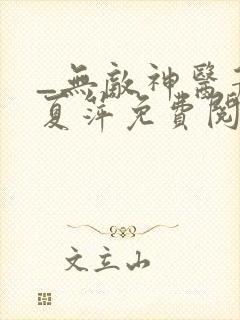 _無敵神醫
夏萍免費閱
文立山